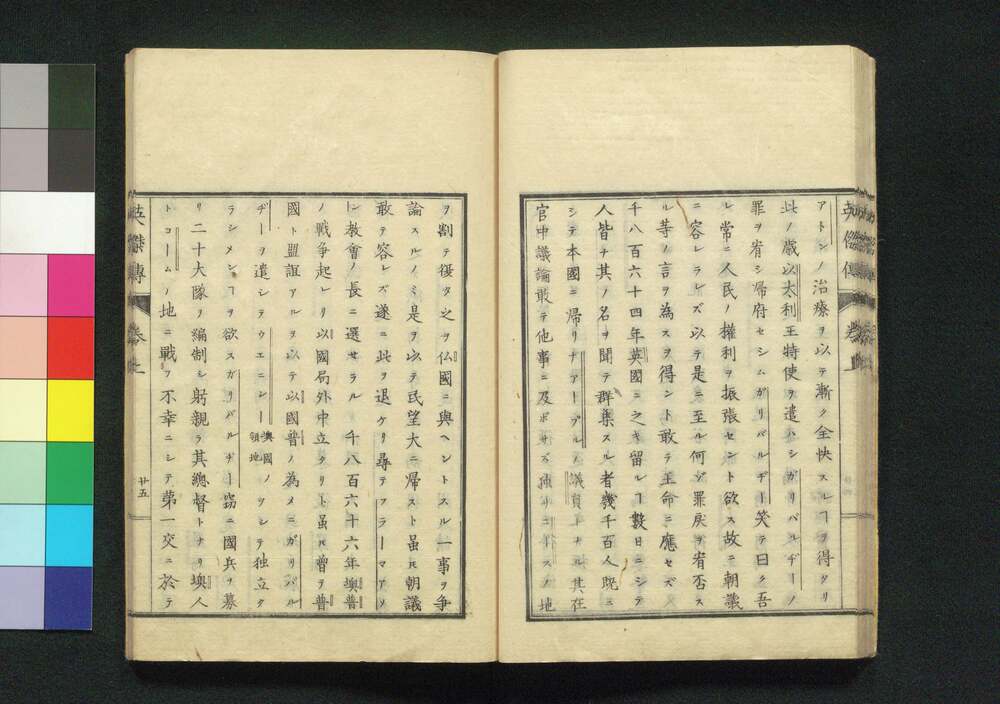 アトンノ治療ヲ以テ漸ク全快スルヿヲ得タリ
此ノ歳以太利王特使ヲ遣ハシガリバルヂーノ
罪ヲ宥シ帰府セシムガリバルヂー笑テ曰ク吾
レ常ニ人民ノ權利ヲ振張セント欲ス故ニ朝議
ニ容レラレズ以テ是ニ至ル何ゾ罪戻ヲ宥否ス
ル等ノ言ヲ為スヲ得ント敢テ王命ニ應セズ
千八百六十四年英國ニ之キ留ルヿ數日ニシテ
人皆チ其ノ名ヲ聞テ群集スル者幾千百人既ニ
シテ本國ニ帰リナアープルノ議員トナル其在
官中議論敢テ他事ニ及ボサズ独リニースノ地
ヲ割テ復タ之ヲ仏國ニ與ヘントスル一事ヲ争
論スルノミ是ヲ以テ民望大ニ帰スト虽𪜈朝議
敢テ容レズ遂ニ此ヲ退ケリ尋テフラーマアソ
ン教會ノ長ニ選セラル 千八百六十六年墺普
ノ戦争起レリ以國局外中立タリト虽𪜈曽ヲ普
國ト盟誼アルヲ以テ以國普ノ為メニガリバル
ヂーヲ遣シテウエニシー墺國領地ノツシテ独立タ
ラシメンヿヲ欲スガリバルヂー窃ニ國兵ヲ募
リ二十大隊ヲ編制シ躬親ラ其總督トナリ墺人
トコームノ地ニ戰フ不幸ニシテ第一交ニ於テ
英傑傳
卷之
廿五